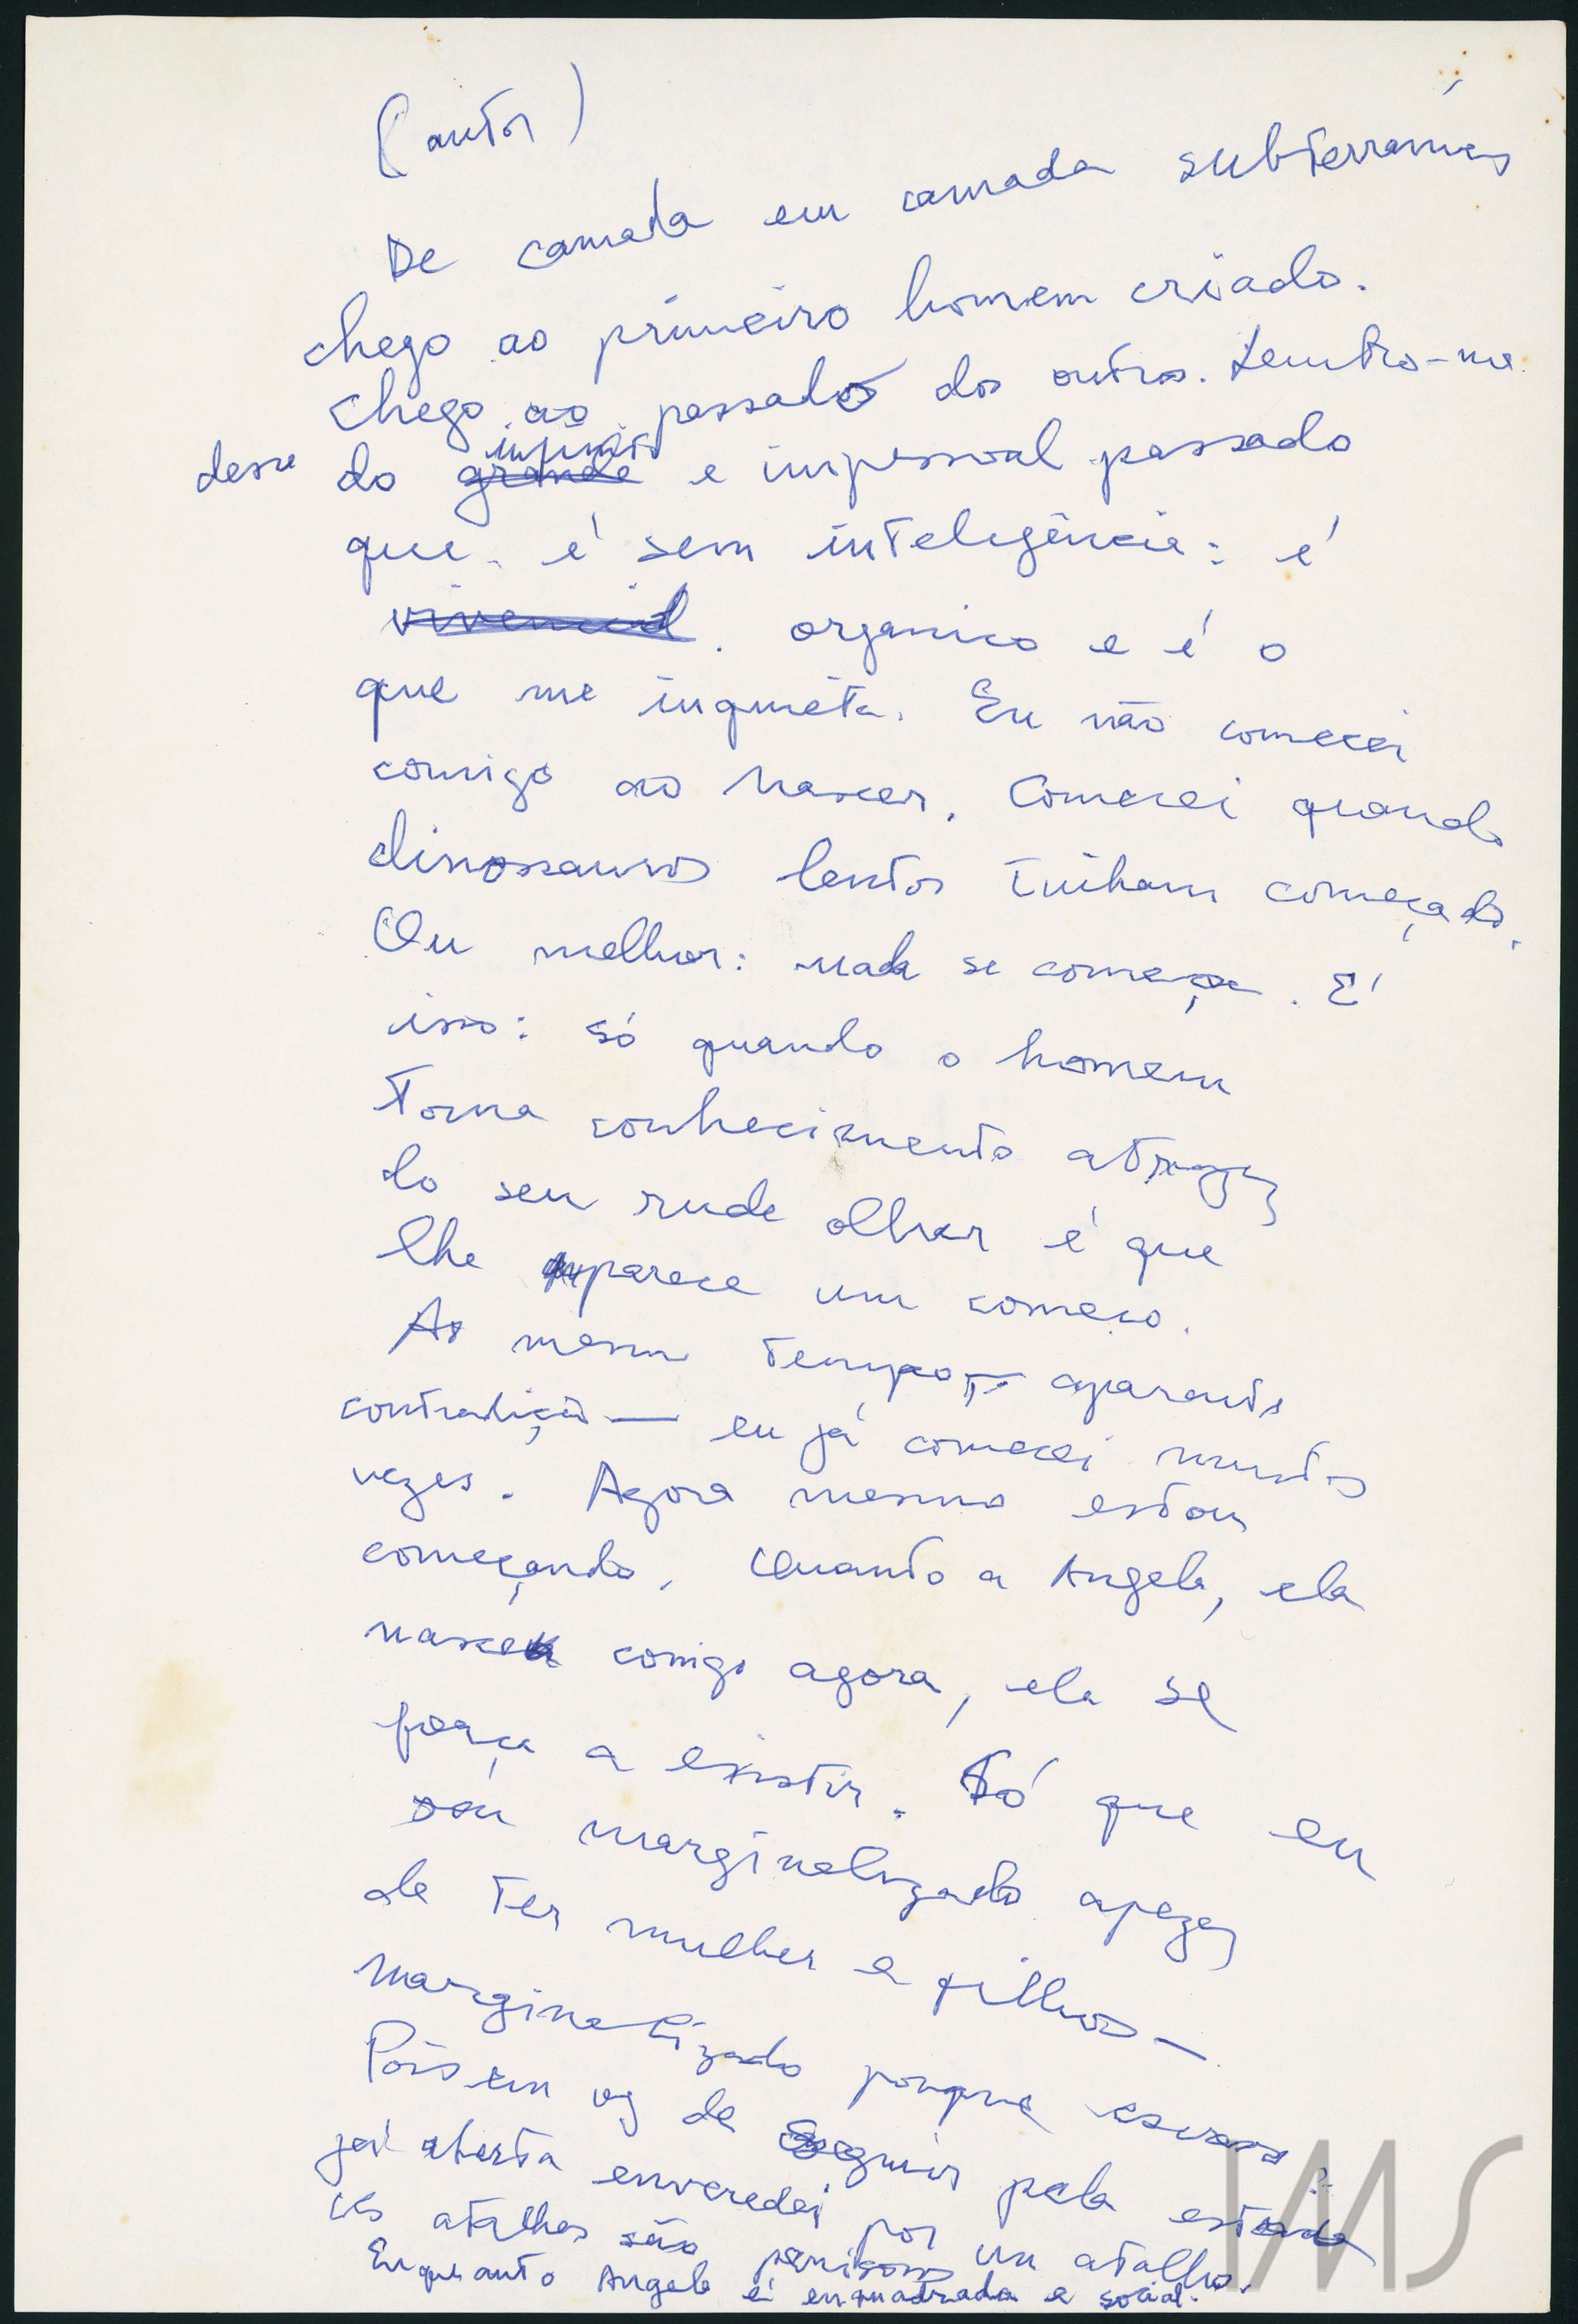 (autor)
De camada em camada subterrânea
chego ao primeiro homem criado.
Chego ao passado dos outros. Lembro-me
desse do grande infinito e impessoal passado
que é sem inteligência: é
vivencial. organico e é o
que me inquieta. Eu não comecei
comigo ao nascer. Comecei quando
dinossauros lentos tinham começado.
Ou melhor: nada se começa. É
isso: só quando o homem
toma conhecimento atraves
do seu rude olhar é que
lhe parece um começo.
Ao mesmo tempo — aparente
contradição — eu já comecei muitas
vezes. Agora mesmo estou
começando. Quanto a Angela, ela
nasceu comigo agora, ela se
força a existir. Só que eu
sou marginalizado apezar
de ter mulher e filhos —
marginalizado porque escrevo.
Pois em vez de seguir pela estrada
já aberta enveredei por um atalho.
Os atalhos são perigosos
Enquanto Angela é enquadrada e social.
IMS